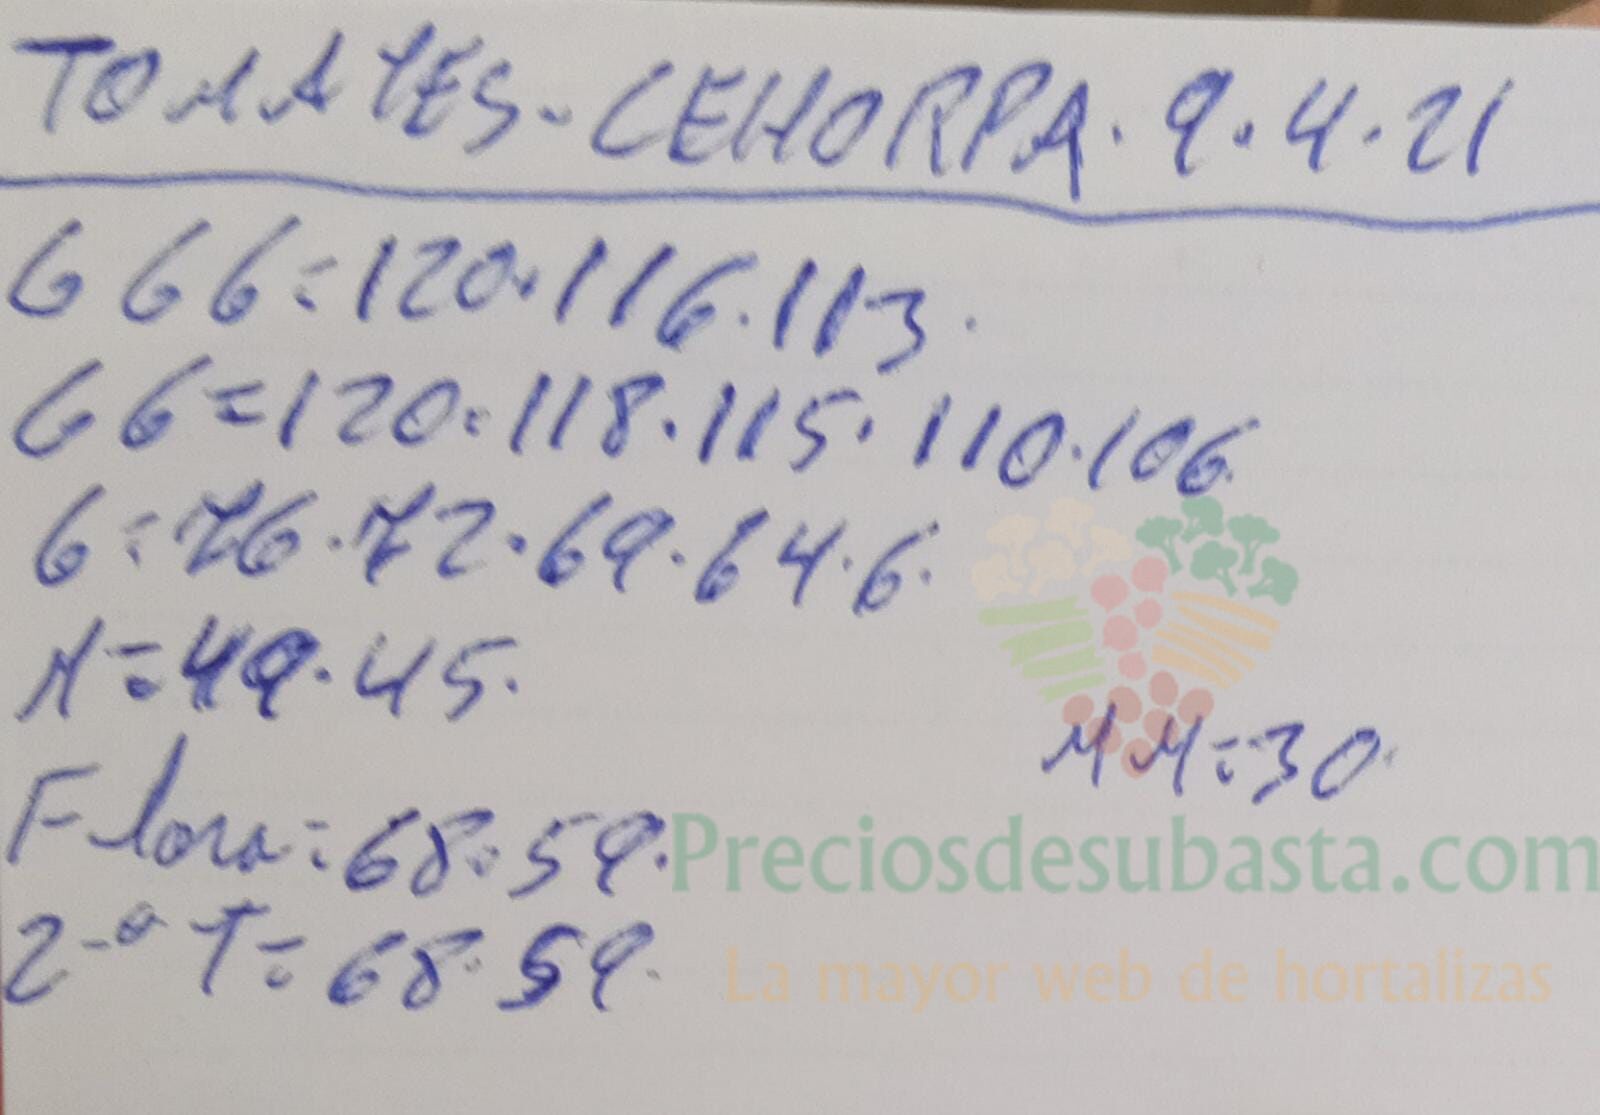 TOMATES-CEHORPA. 9.4.21
GGG=120.116.113.
GG=120.118.115.110.106.
G=76.72.69.64.6.
M=49.45.
MM=30.
Flora=68.59.
Preciosdesubasta.com
2-ª T=68.59.
La mayor web de hortalizas